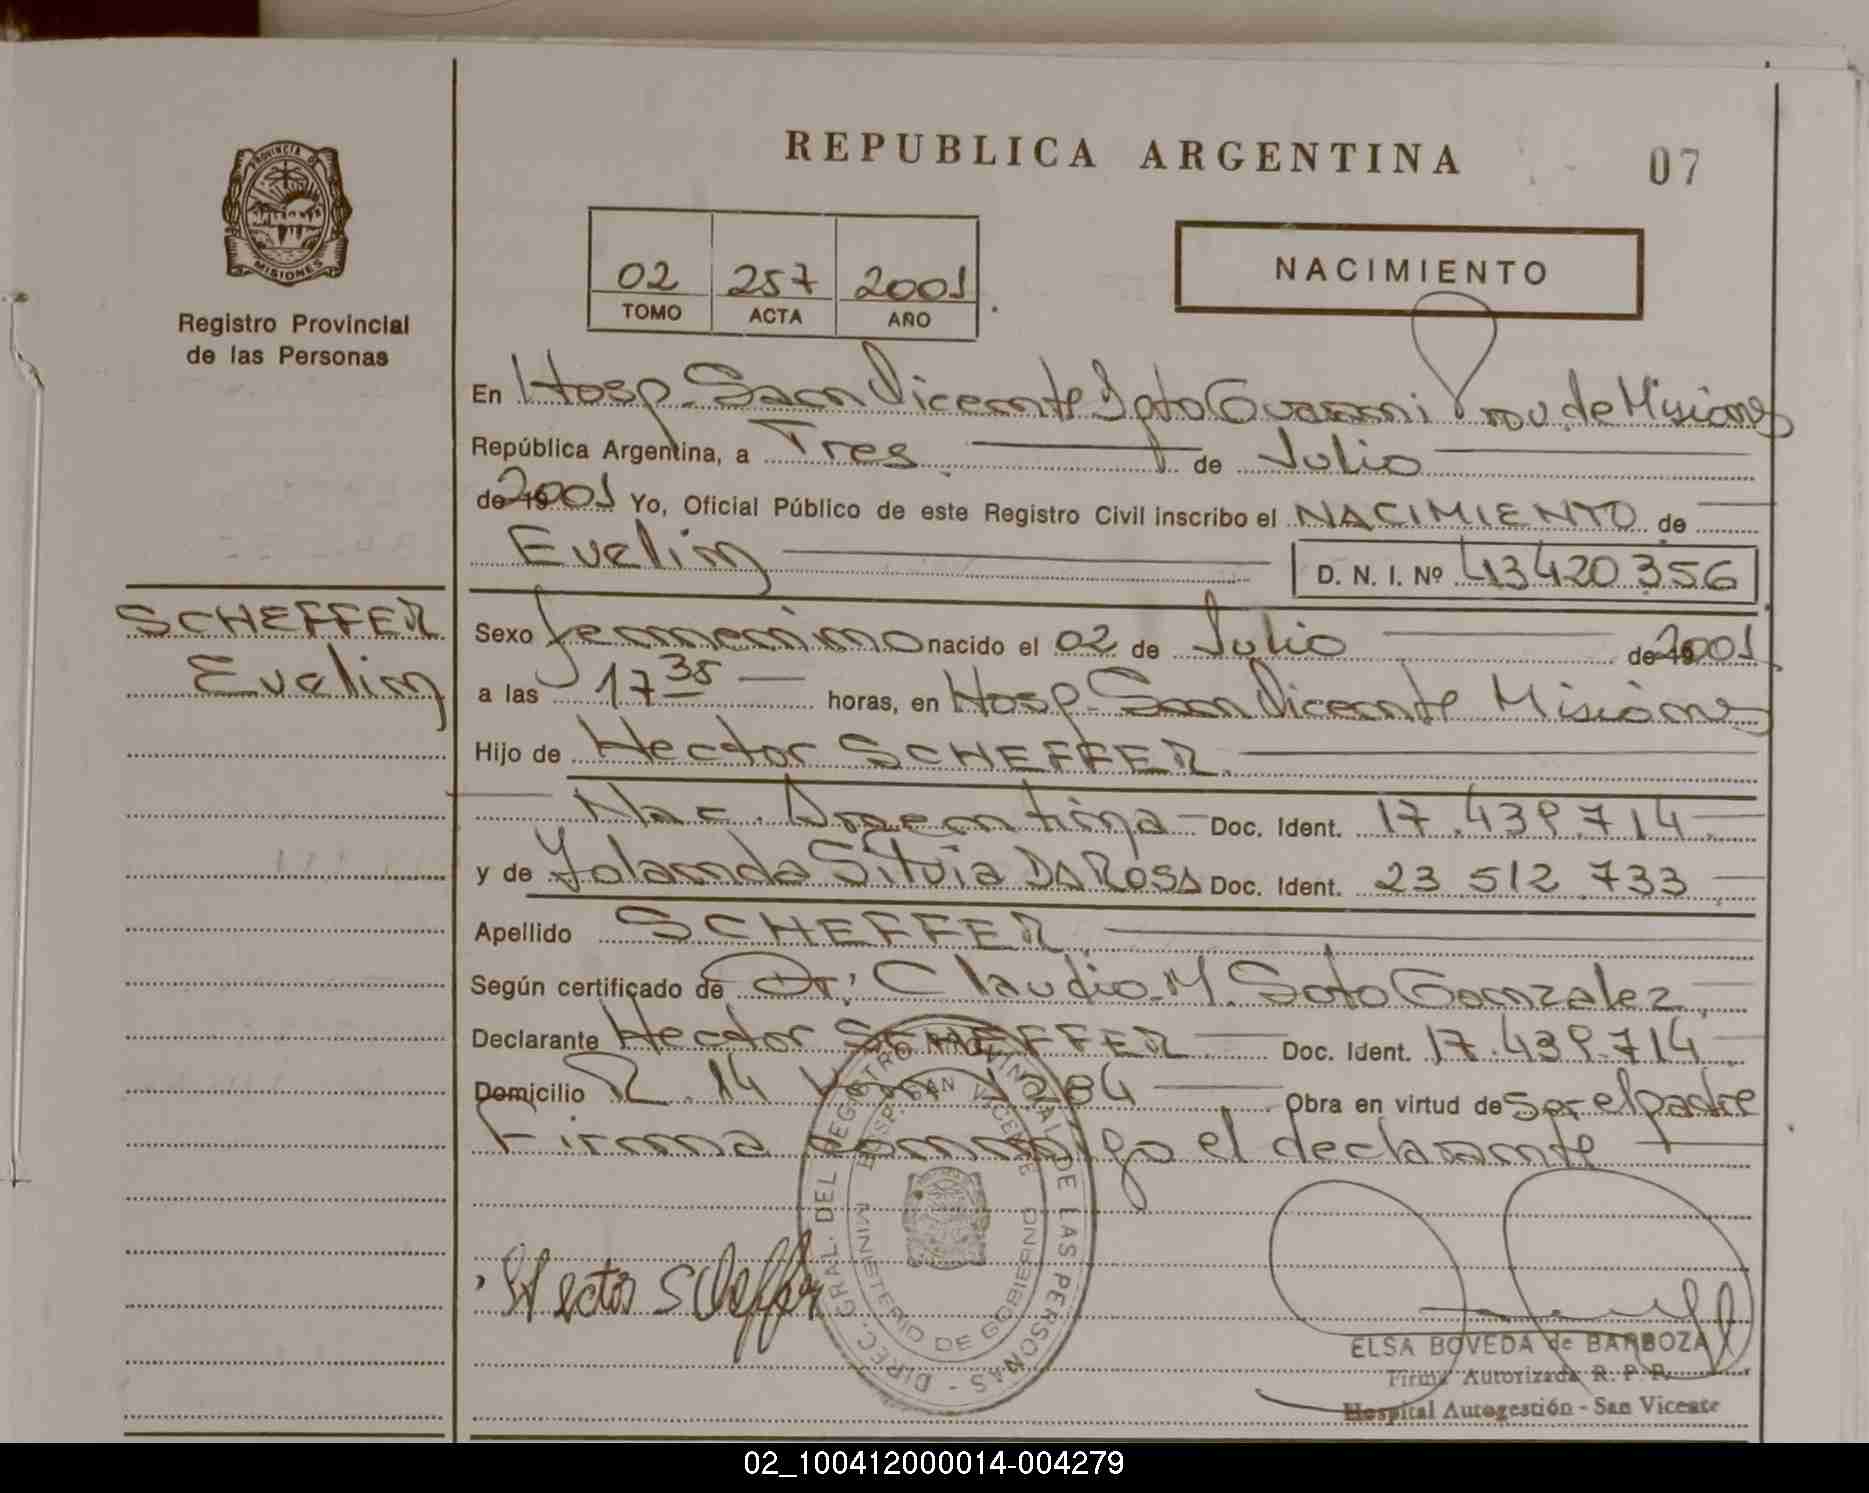 REPUBLICA ARGENTINA
07
PROVINCIA DE
MISIONES
Registro Provincial
de las Personas
02 257 2001
TOMO ACTA AÑO
NACIMIENTO
En Hosp. San Vicente Dpto Guarani Prov. de Misiones
República Argentina, a Tres de Julio
de 2001 Yo, Oficial Público de este Registro Civil inscribo el NACIMIENTO de
Evelin D. N. I. Nº 43420356
SCHEFFER
Evelin
Sexo femenino nacido el 02 de Julio de 2001
a las 17 35 horas, en Hosp. San Vicente Misiones
Hijo de Hector SCHEFFER
Nac. Argentina Doc. Ident. 17.439.714
y de Yolanda Silvia DA ROSA Doc. Ident. 23 512 733
Apellido SCHEFFER
Según certificado de Dr. Claudio M. Soto Gonzalez
Declarante Hector SCHEFFER Doc. Ident. 17.439.714
Domicilio R. 14 Km 1284 Obra en virtud de Ser el padre
Firma conmigo el declarante
DIREC. GRAL. DEL REGISTRO PROVINCIAL DE LAS PERSONAS -
HOSP. SAN VICENTE
MINISTERIO DE GOBIERNO
Hector Scheffer
ELSA BOVEDA de BARBOZA
Firma Autorizada R. P. P.
Hospital Autogestión - San Vicente
02_100412000014-004279